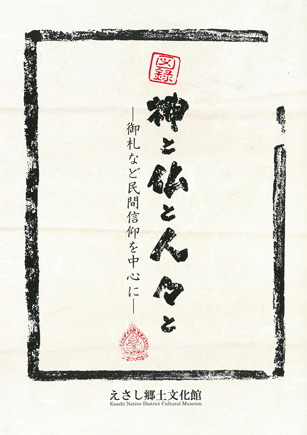 図録
神と仏と人々と
―御札など民間信仰を中心に―
えさし郷土文化館
Esashi Native District Cultural Museum